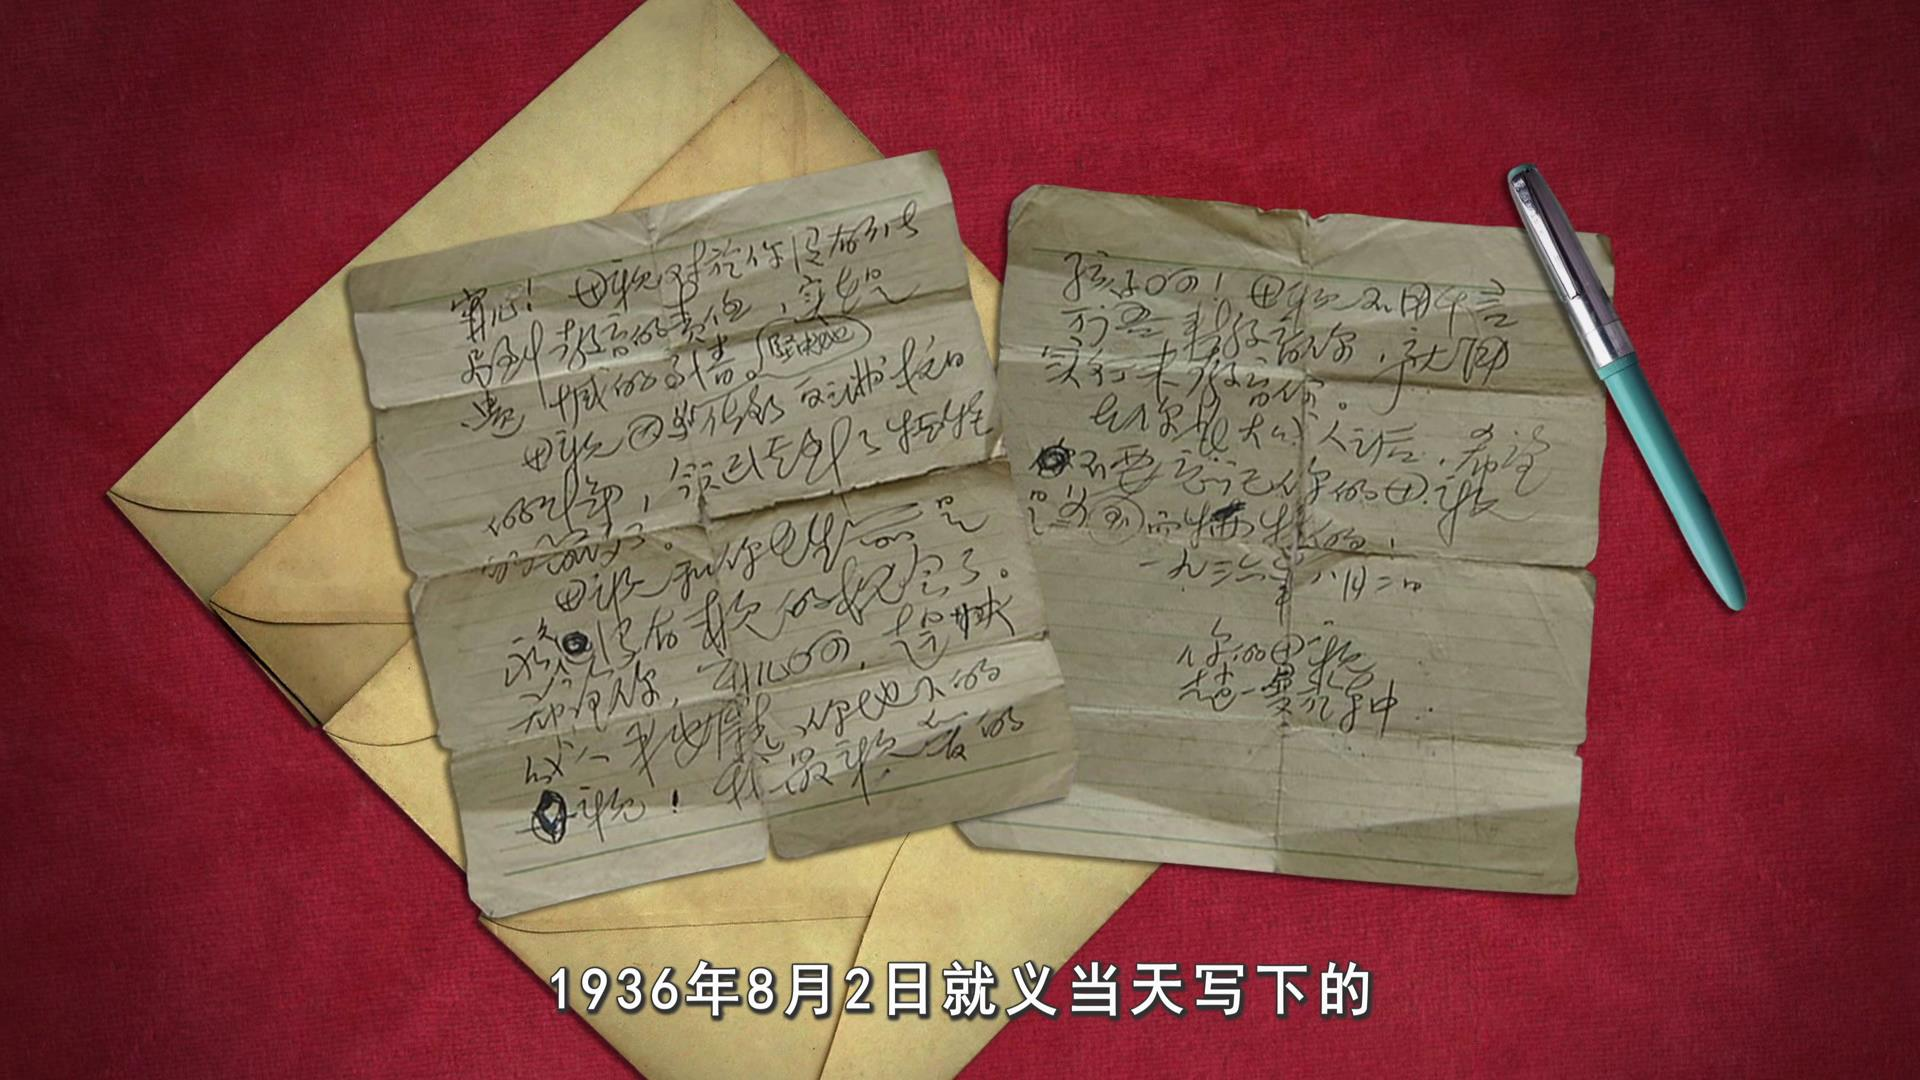 寧儿！母親对於你没有能尽
到教育的责任，实在是
遗憾的事情。坚决地
母親因为做了反满抗日
的斗争，今天已经到了牺牲
的前夕了。
母親和你在生前是
永久没有再見的机会了。
希望你，宁儿啊，赶快
成人来安慰你地下的
母親！我最親爱的
孩子啊！母親不用千言
万语来教育你，就用
实行来教育你。
在你长大成人之后，希望
不要忘记你的母親
是为国而牺牲的！
一九三六年八月二日
你的母親
赵一曼于车中
1936年8月2日就义当天写下的